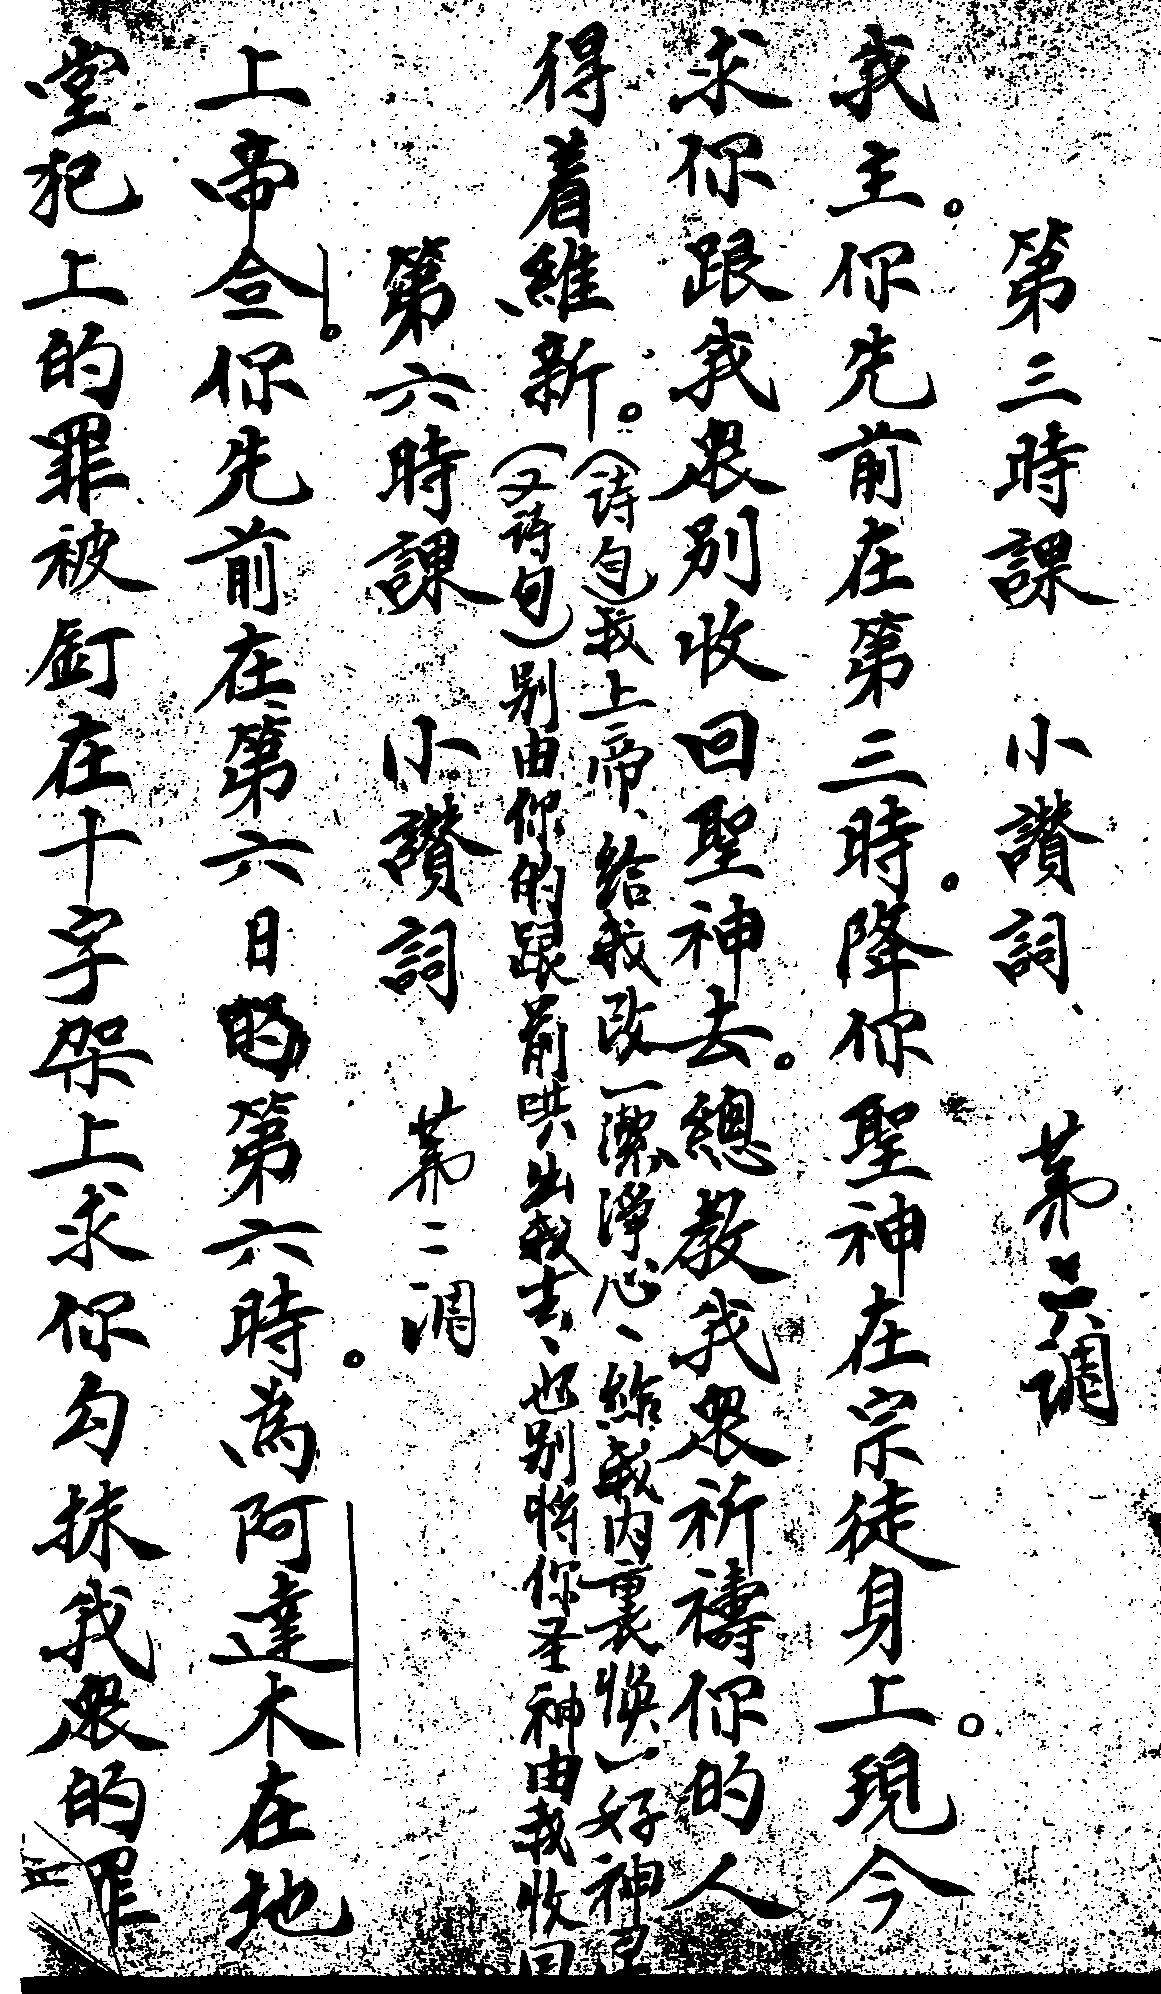 第三時課　小讚詞、　第六調
我主。你先前在第三時。降你聖神在宗徒身上。現今
求你跟我衆别收回聖神去。總教我衆祈禱你的人
得着維新。（詩句）我上帝、給我改一潔淨心、給我内裏焕一好神
（又詩句）别由你的跟前哄出我去、也别将你圣神由我收回
第六時課　小讚詞　第二調
上帝。你先前在第六日的第六時。為阿達木在地
堂犯上的罪被釘在十字架上求你勾抹我衆的罪